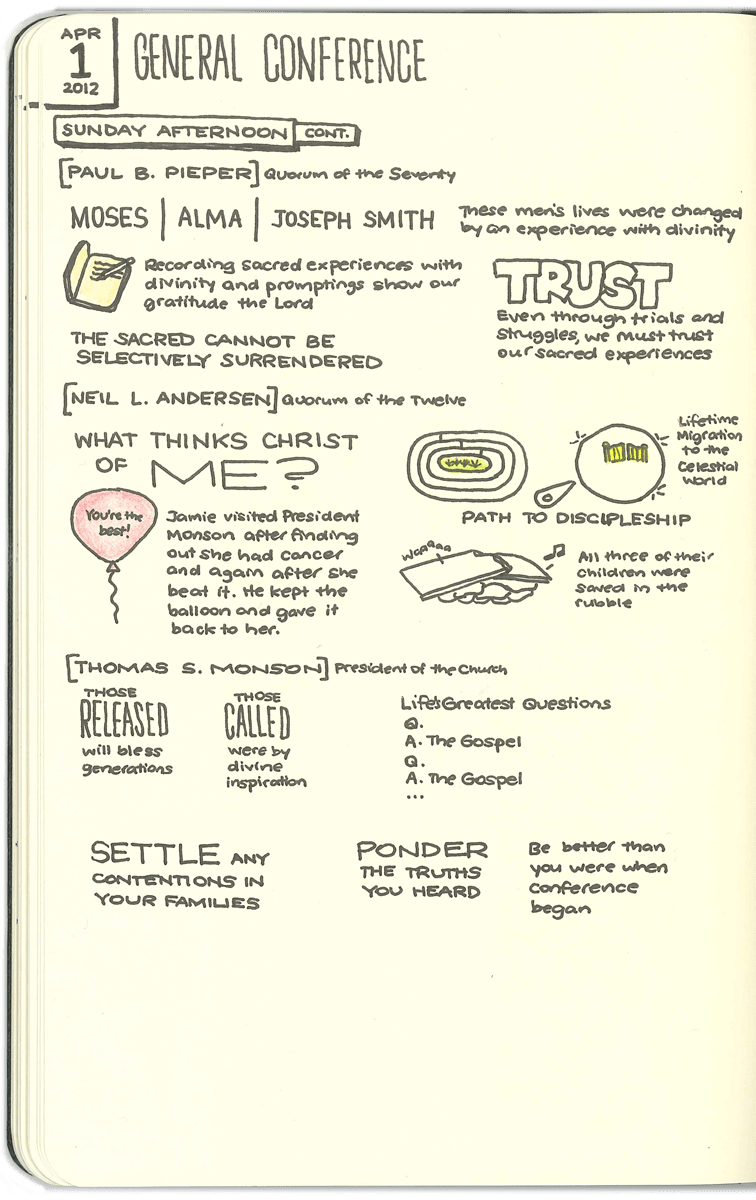 APR
1
2012
GENERAL CONFERENCE
SUNDAY AFTERNOON CONT.
[PAUL B. PIEPER] Quorum of the Seventy
MOSES | ALMA | JOSEPH SMITH
These men's lives were changed
by an experience with divinity
Recording sacred experiences with
divinity and promptings show our
gratitude the Lord
TRUST
Even through trials and
struggles, we must trust
our sacred experiences
THE SACRED CANNOT BE
SELECTIVELY SURRENDERED
[NEIL L. ANDERSEN] Quorum of the Twelve
WHAT THINKS CHRIST
OF ME?
Lifetime
Migration
to the
Celestial
World
PATH TO DISCIPLESHIP
You're the
best!
Jamie visited President
Monson after finding
out she had cancer
and again after she
beat it. He kept the
balloon and gave it
back to her.
All three of their
children were
saved in the
rubble
[THOMAS S. MONSON] President of the Church
THOSE
RELEASED
will bless
generations
THOSE
CALLED
were by
divine
inspiration
Life's Greatest Questions
Q.
A. The Gospel
Q.
A. The Gospel
...
SETTLE ANY
CONTENTIONS IN
YOUR FAMILIES
PONDER
THE TRUTHS
YOU HEARD
Be better than
you were when
conference
began